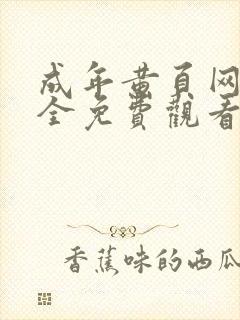 成年黄頁网
全免費觀看
香蕉味的西瓜